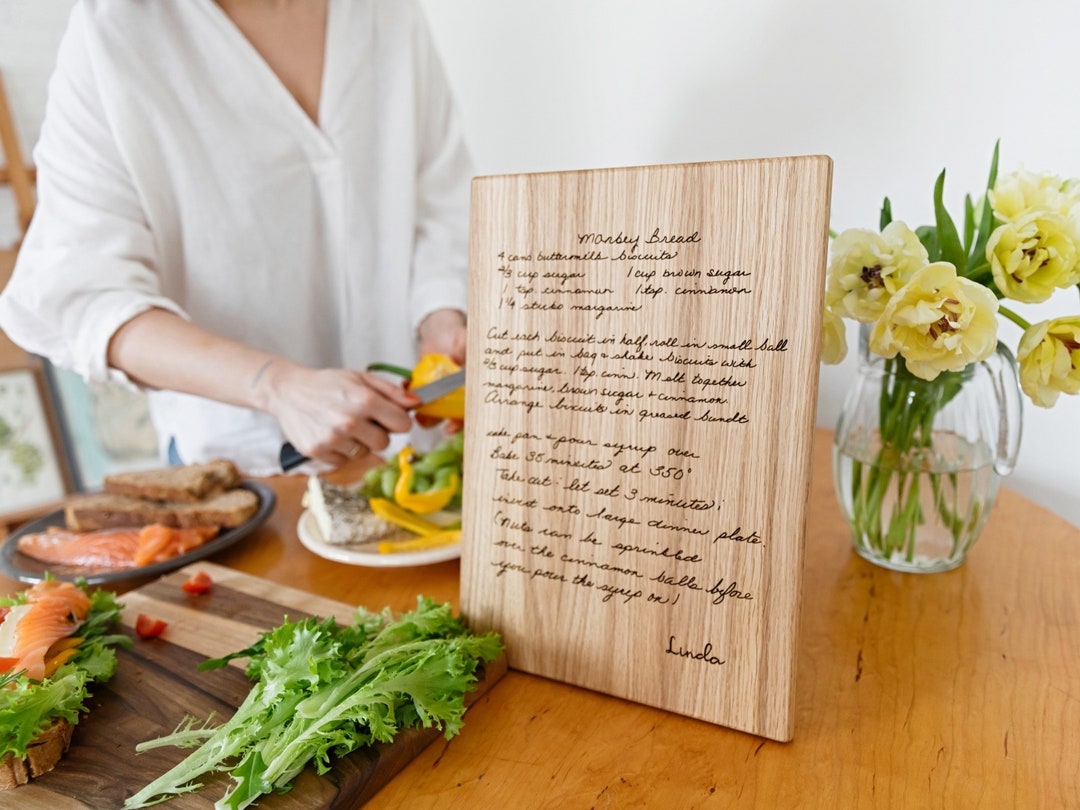 Monkey Bread
4 cans buttermilk biscuits
2/3 cup sugar 1 cup brown sugar
1 tsp. cinnamon 1 tsp. cinnamon
1 1/4 sticks margarine
Cut each biscuit in half, roll in small ball
and put in bag & shake biscuits with
2/3 cup sugar. 1 tsp. cinn. Melt together
margarine, brown sugar + cinnamon.
Arrange biscuits in greased bundt
cake pan & pour syrup over
Bake 35 minutes at 350°
Take out : let set 3 minutes;
invert onto large dinner plate.
(Nuts can be sprinkled
over the cinnamon balls before
you pour the syrup on)
Linda